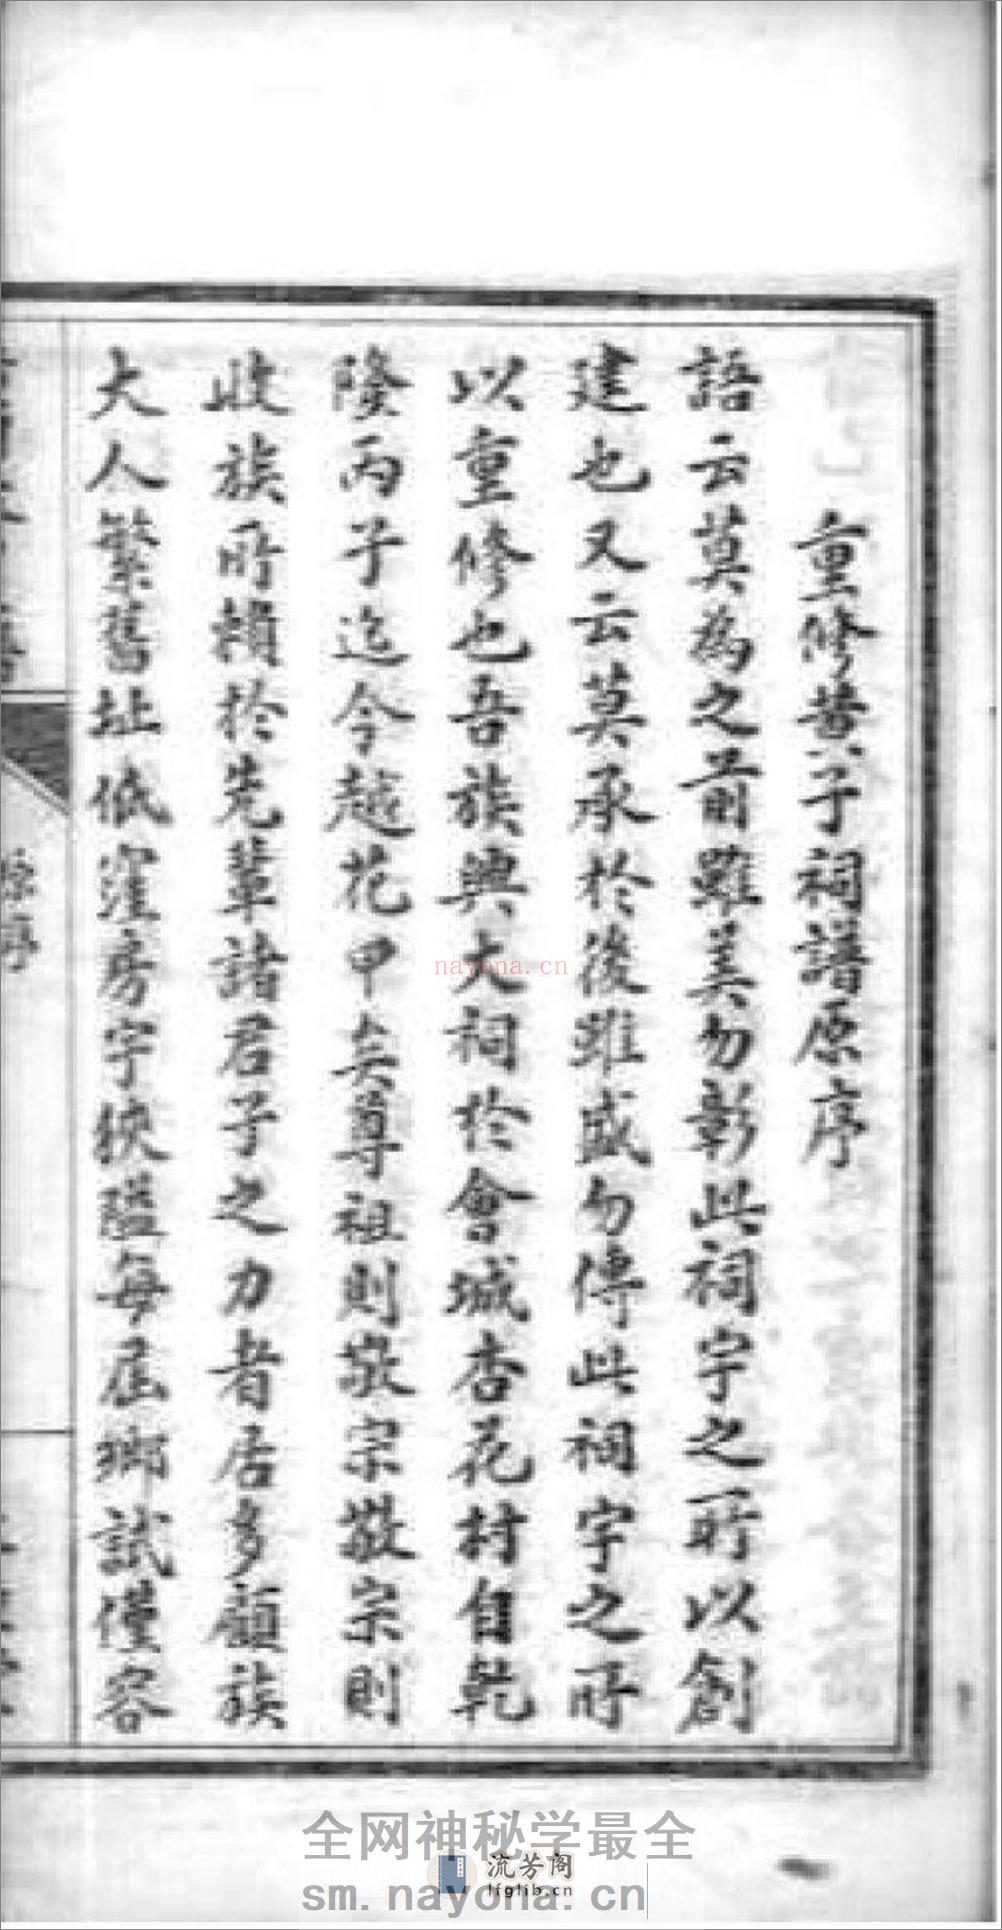 重修黄子祠譜原序
語云莫為之前雖美勿彰此祠宇之所以創
建也又云莫承於後雖盛勿傳此祠宇之所
以重修也吾族興大祠於會城杏花村自乾
隆丙子迄今越花甲矣尊祖則敬宗敬宗則
收族所賴於先輩諸君子之力者居多顧族
大人繁舊址低窪房宇狹隘每屆鄉試僅容
原序
nayona.cn
全网神秘学最全
流芳阁
lfglib.cn
sm.nayona.cn